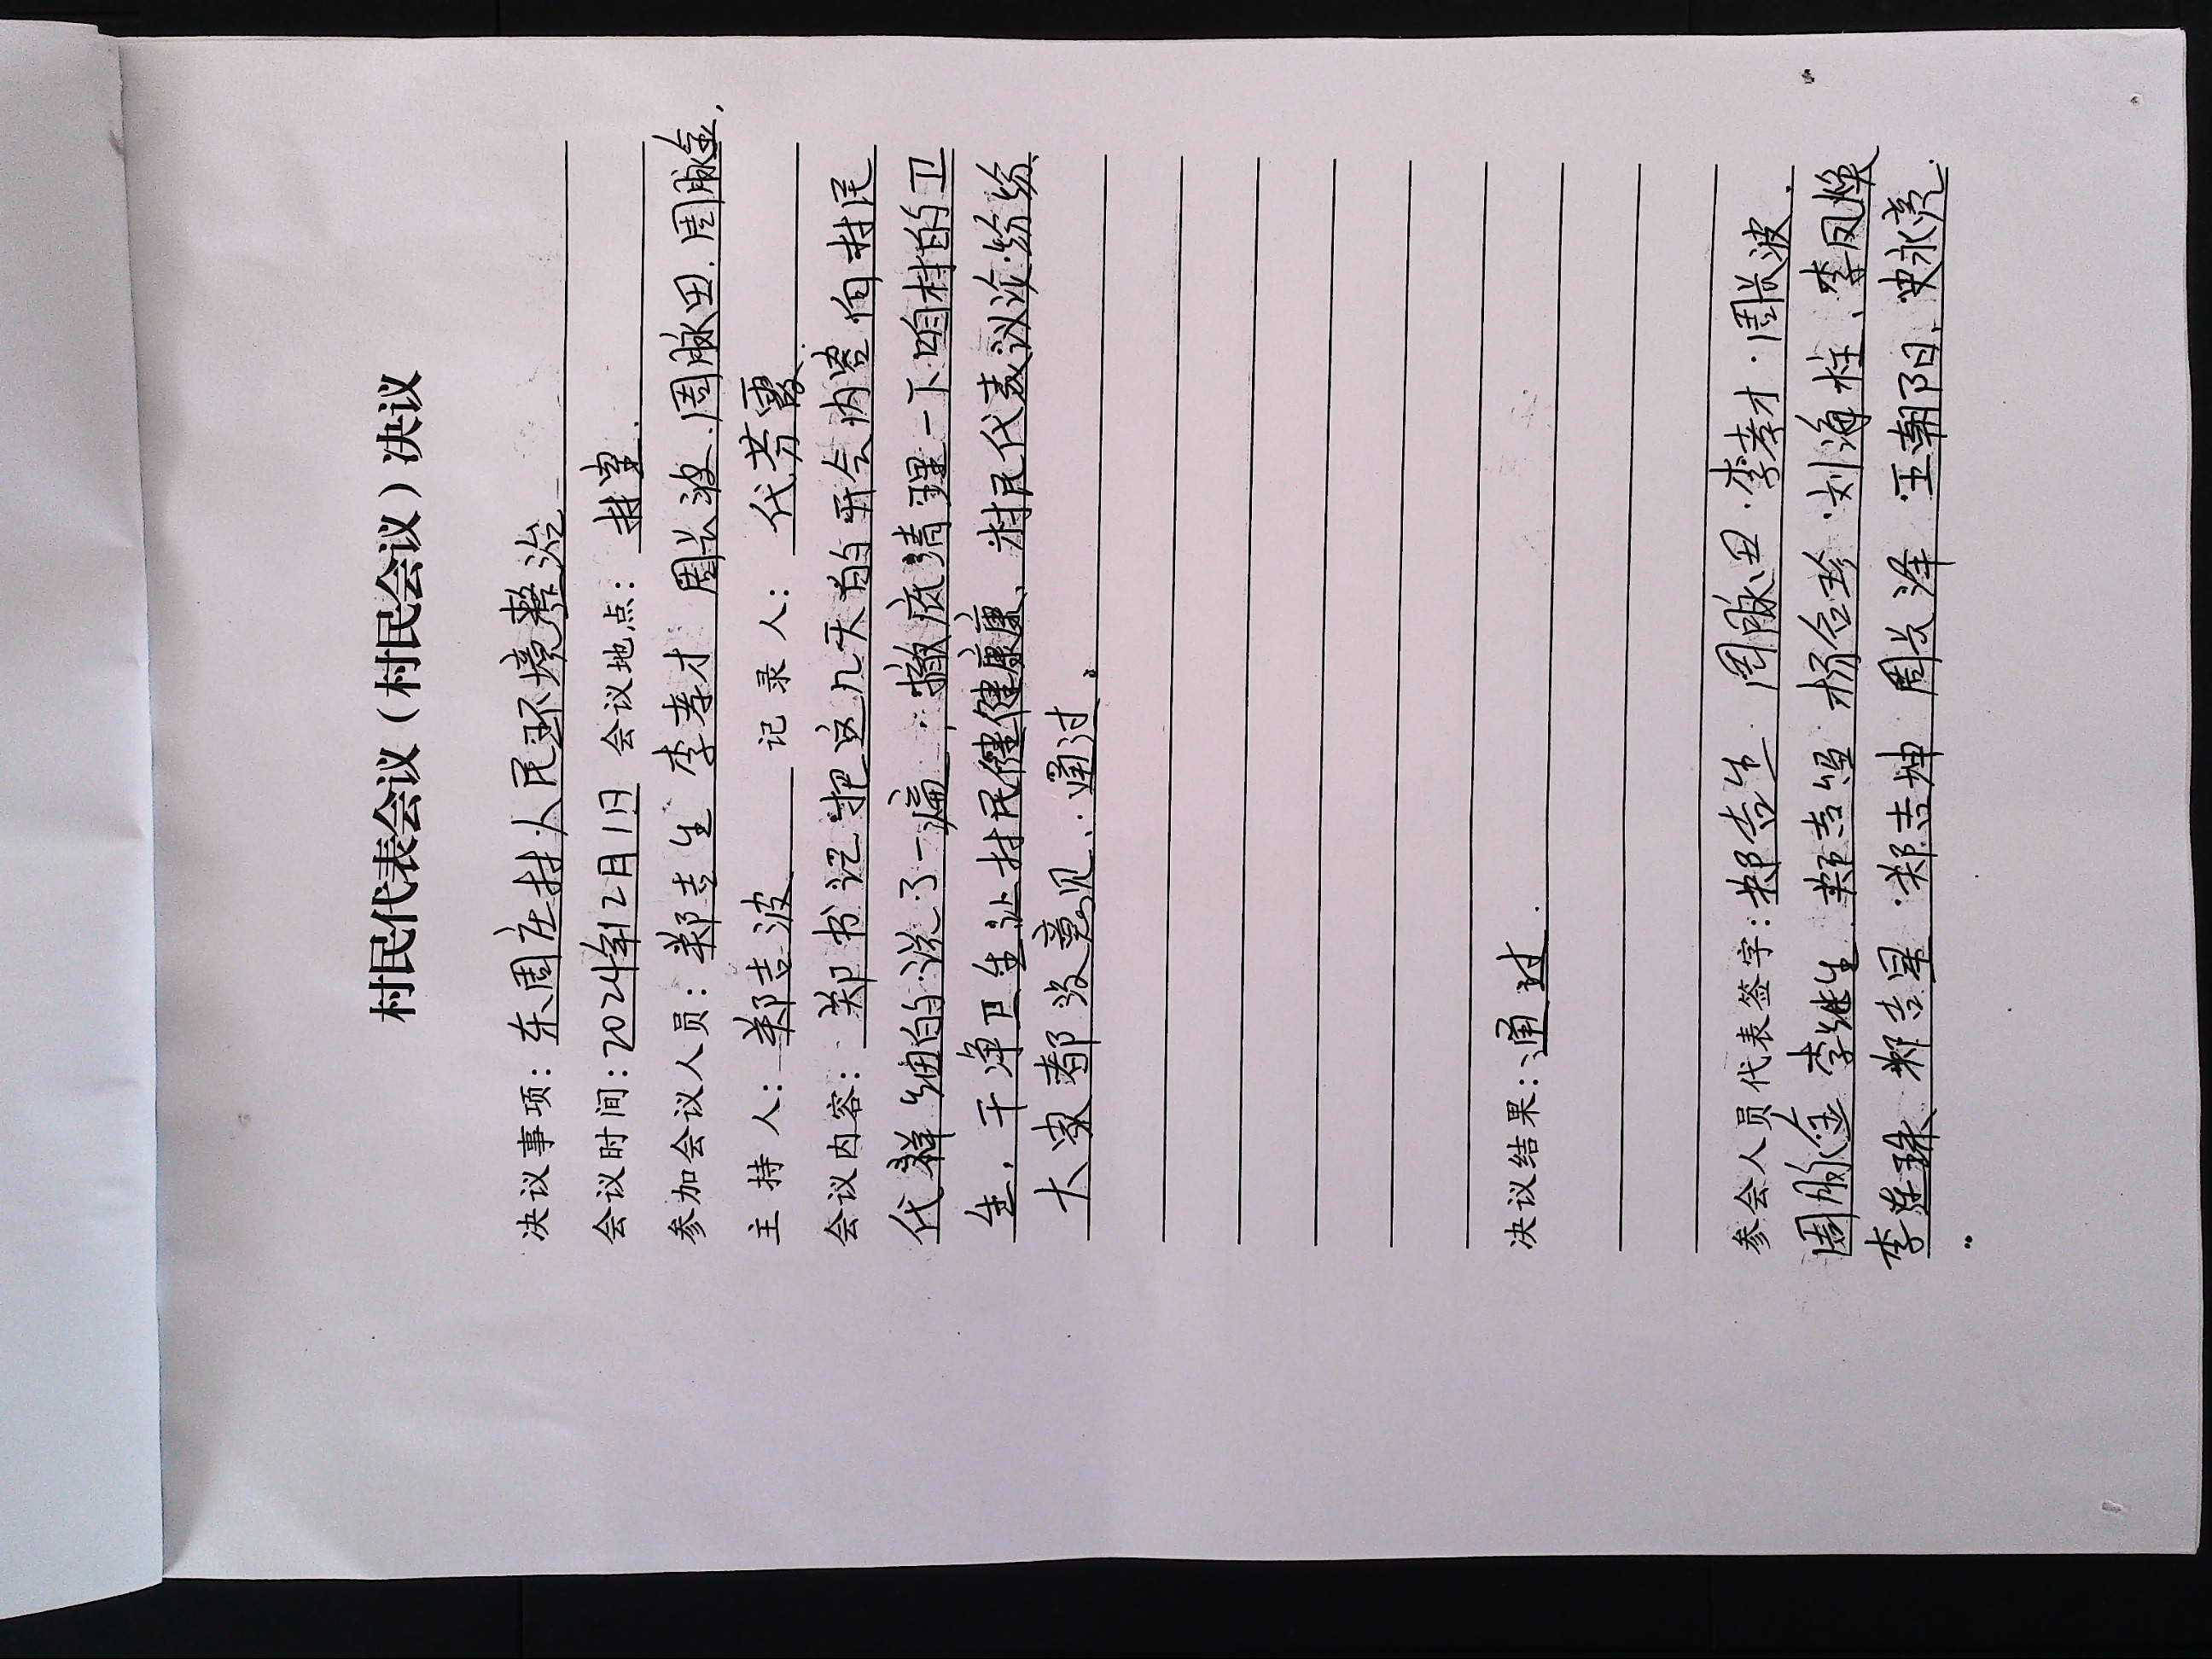 村民代表会议（村民会议）决议
决议事项：东周庄村人民环境整治
会议时间：2024年12月1日 会议地点：村室.
参加会议人员：郑吉生 李孝才 周长波.周脉田.周脉金.
主持人：郑吉波 记录人：代芳霞.
会议内容：郑书记把这几天的开会内容向村民
代祥细的说了一遍，撤底清理一下咱村的卫
生，干净卫生让村民健健康康、村民代表议论纷纷
大家都没意见、通过。
决议结果：通过.
参会人员代表签字：郑吉生 周脉田·李孝才·周长波.
周脉金 李继生 郑吉 杨合珍·刘海柱、李凤焕
李连珠 郑吉星·郑吉坤 周长泽 王朝阳、史永亮.